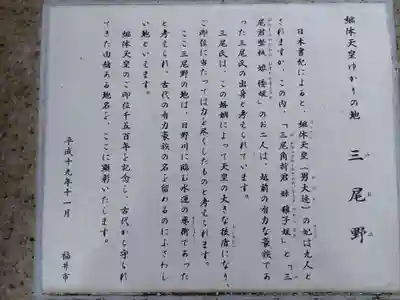 継体天皇ゆかりの地
三尾野
みおの
日本書紀によると、継体天皇(男大迹)の妃は九人と
されますが、この内、「三尾角折君 妹 稚子媛」と「三
尾君堅楲 女 倭媛」のお二人は、越前の有力な豪族であ
った三尾氏の出身と考えられています。
三尾氏は、この婚姻によって天皇の大きな後盾になり、
ご即位に当たっては力を尽くしたものと考えられます。
ここ三尾野の地は、日野川に臨む水運の要衝であった
と考えられ、古代の有力豪族の名を留めるのにふさわし
い地といえます。
継体天皇のご即位千五百年を記念し、古代から守られ
てきた由緒ある地名を、ここに顕彰いたします。
平成十九年十一月
福井市